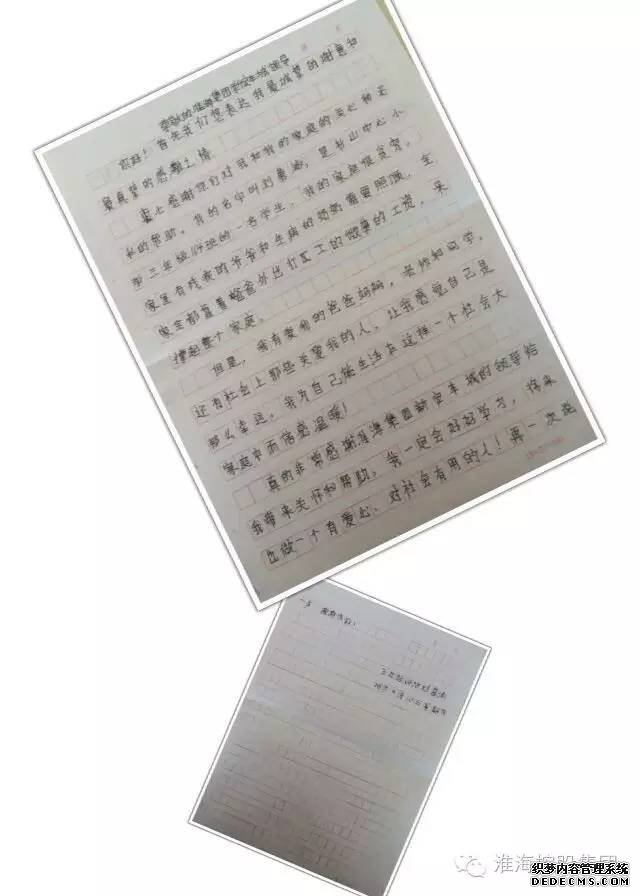 尊敬的淮海集团新城丰城领导
你好!首先我们想表达我最诚挚的谢意和
最真挚的感激之情
衷心感谢您们对我和我的家庭的关心和无
私的帮助。我的名字叫刘,是中心小
学三年级班的一名学生。我的家庭很贫穷。
家里有残疾的爷爷和生病的奶奶需要照顾。全
家全部靠着爸爸外出打工的微薄的工资,来
撑起整个家庭。
但是,我有爱我的爸爸妈妈,老师和同学,
还有社会上那些关爱我的人,让我感觉自己是
那么幸运。我为自己能生活在这样一个社会大
家庭中而倍感温暖!
真的非常感谢淮海集团新城丰城的领导给
我带来关怀和帮助,我一定会好好学习,将来
也做一个有爱心、对社会有用的人!再一次说
一声 谢谢你们!
淮海控股集团
织梦内容管理系统
DEDECMS.COM